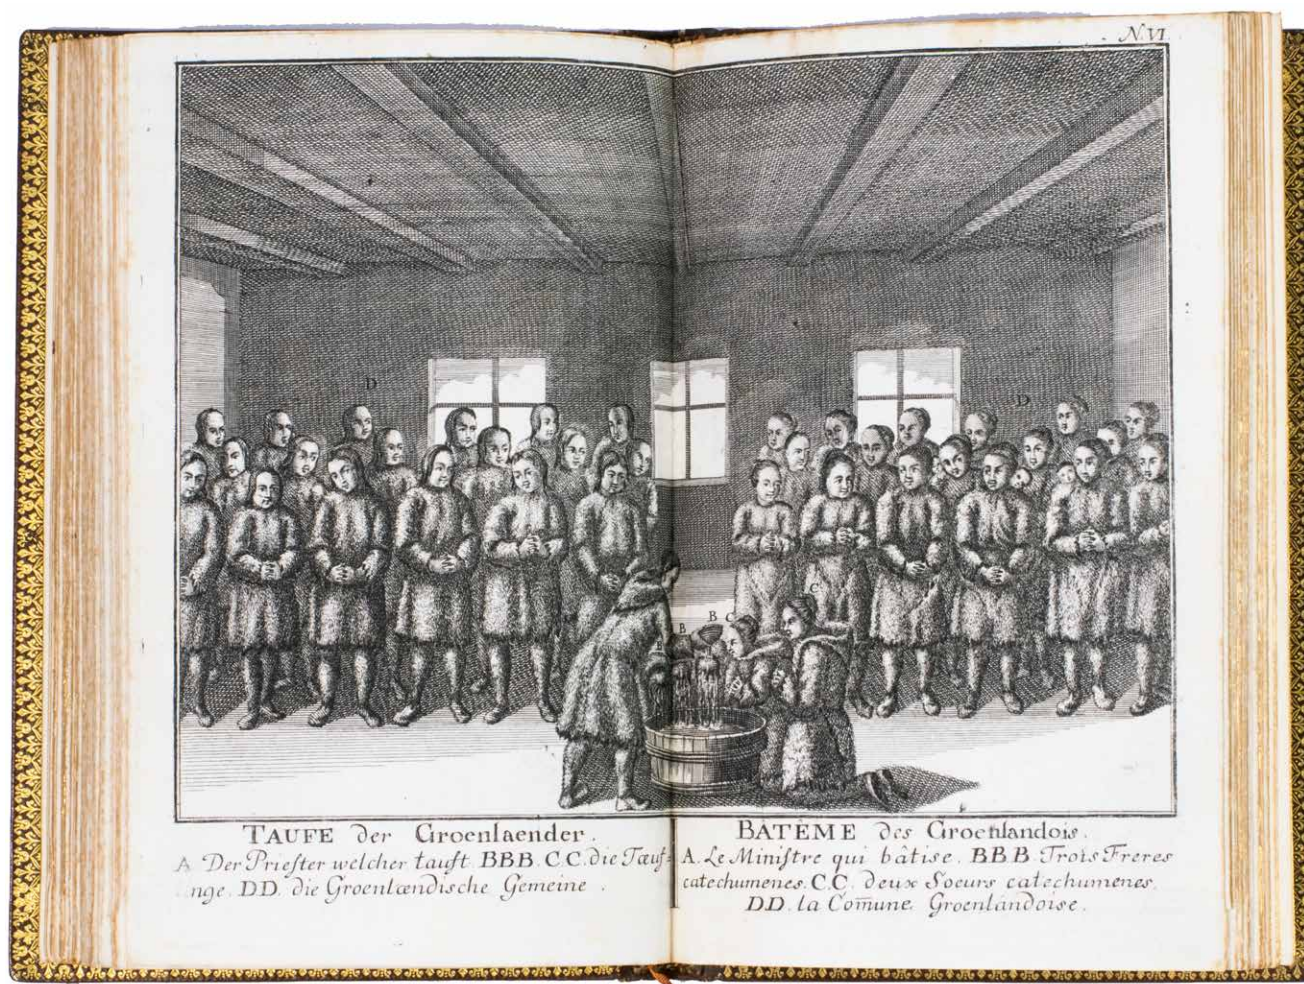 N. VI.
D
D
C
B
B C
TAUFE der Groenlaender.
A. Der Priester welcher tauft. BBB. C.C. die Tæuf=
nge. DD. die Groenlændische Gemeine.
BATÊME des Groenlandois.
A. Le Ministre qui bâtise. BBB. Trois Freres
catechumenes. C.C. deux Soeurs catechumenes.
DD. la Com̄une Groenlandoise.